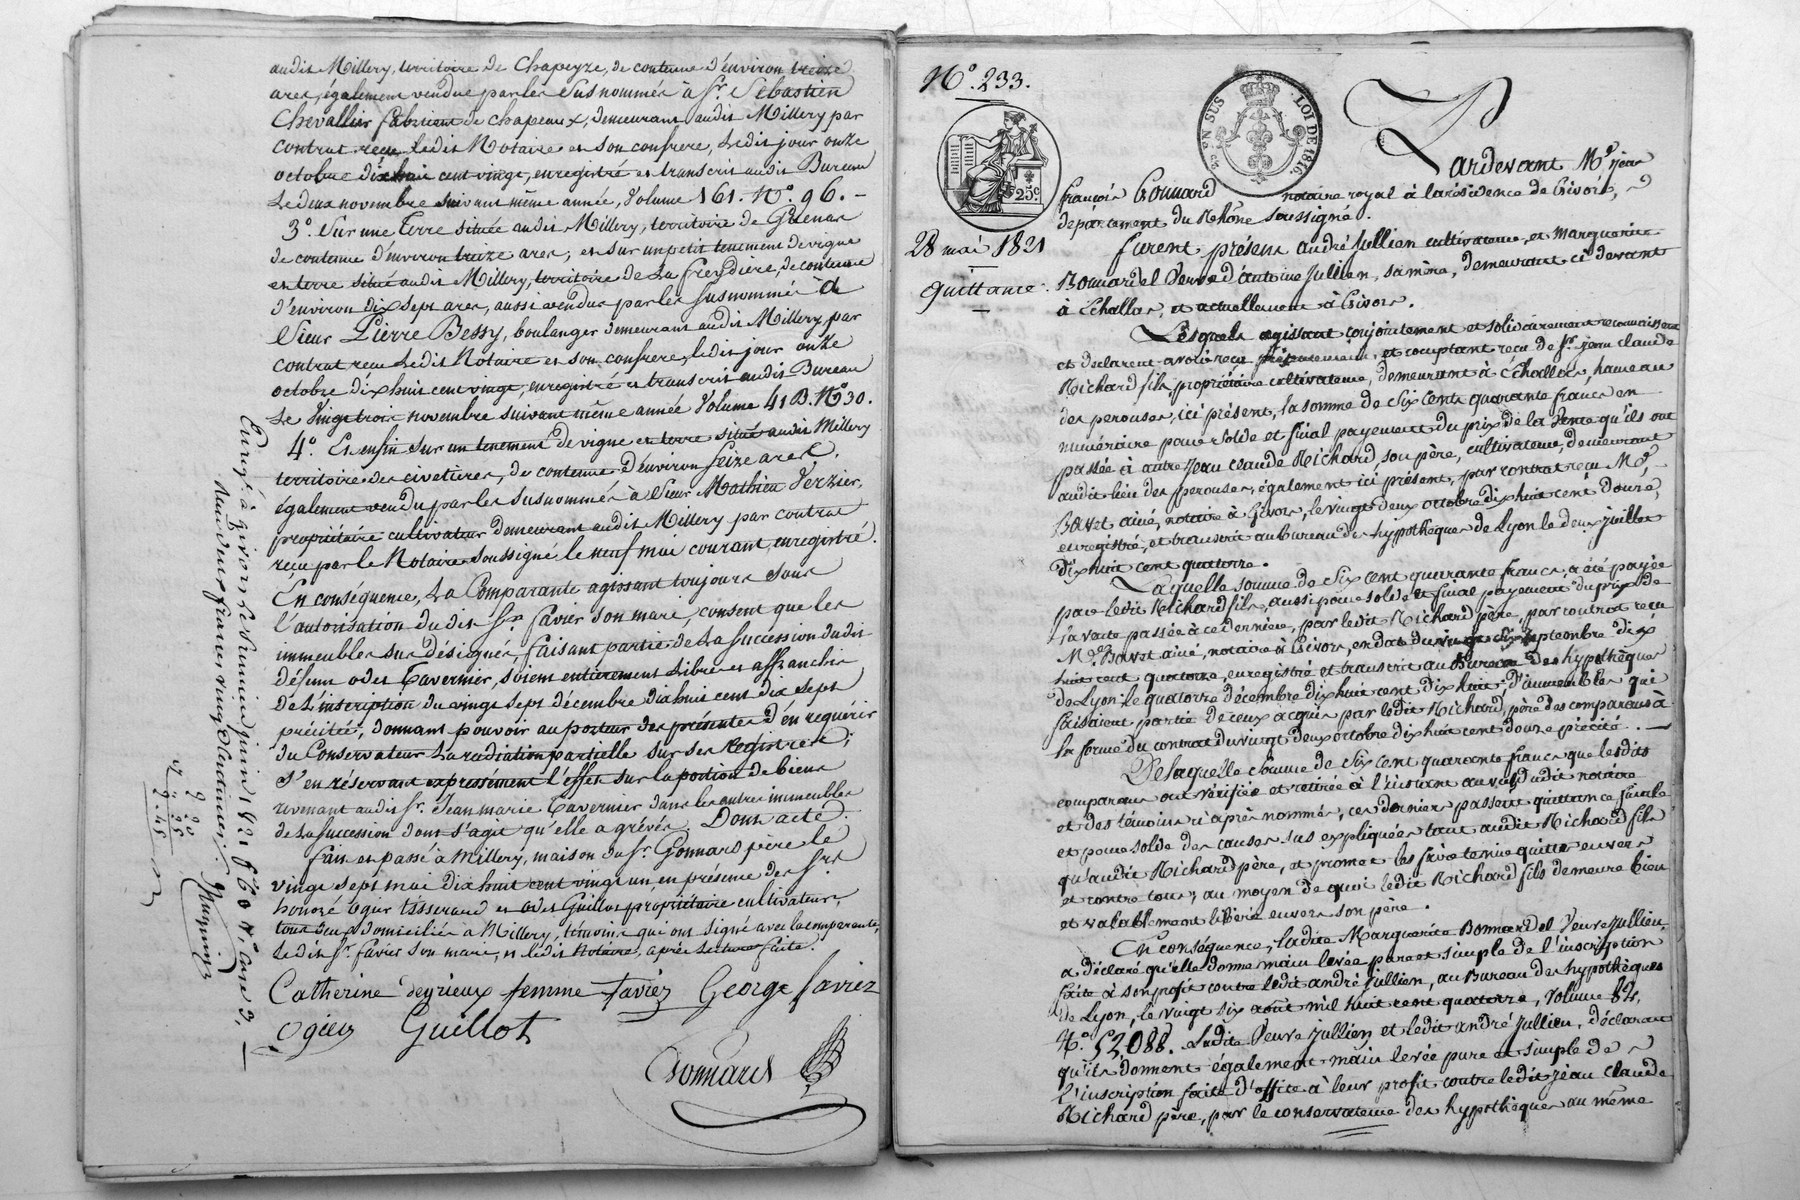 audit Millery, territoire de Chapeyze, de contenue d'environ treize
ares, également vendue par les susnommés à Sr. Sébastien
Chevallier fabricant de chapeaux, demeurant audit Millery par
contrat reçu ledit Notaire et son confrere, Ledit jour onze
octobre dix huit cent vingt, enregistré et transcrit audit Bureau
Le deux novembre suivant même année, Volume 161. N°. 96. –
3°. Sur une Terre située audit Millery, territoire de Grenas
de contenue d'environ treize ares; et sur un petit tenement de vigne
et terre situé audit Millery, territoire de La freydière, de contenue
d'environ dix sept ares, aussi vendus par les susnommés à
Sieur Pierre Bessy, boulanger demeurant audit Millery, par
contrat reçu Ledit Notaire et son confrere, ledit jour onze
octobre dix huit cent vingt, enregistré et transcrit audit Bureau
Le Vingt trois novembre suivant même année Volume 41 B. N°. 30.
4°. Et enfin sur un tenement de vigne et terre situé audit Millery
territoire des civetieres, de contenue d'environ seize ares,
également vendu par les susnommés à Sieur Mathieu Verzier,
propriétaire cultivateur demeurant audit Millery par contrat
reçu par le Notaire soussigné le neuf mai courant, enregistré.
En conséquence, La Comparante agissant toujours sous
l'autorisation dudit Sr. favier son mari, consent que les
immeubles sus désignés, faisant partie de La succession dudit
défunt odet Tavernier, soient entierement Libres et affranchis
de L'inscription du vingt sept décembre dix huit cent dix sept
précitée; donnant pouvoir au porteur des présentes d'en requérir
du Conservateur La radiation partielle sur ses Registres;
S'en réservant expressément l'effet sur la portion de biens
revenant audit Sr. Jean marie Tavernier dans les autres immeubles
de La succession dont s'agit qu'elle a grévés. Dont acte.
fait et passé à Millery, maison du Sr. Gonnard père le
vingt sept mai dix huit cent vingt un, en présence des Srs.
honoré ogier tisserand et odet Guillot propriétaire cultivateur,
tous deux domiciliés à Millery, témoins qui ont signé avec la comparante,
ledit Sr. favier son mari, et ledit Notaire, après lecture faite.
Catherine deyrieux femme favier George favier
Ogier Guillot
Gonnard
Enregé. à Givors le 1821 f°. 60 R°. case 3.
Reçu deux francs vingt centimes.
N°. 233.
25c.
LOI DE 1816
28 mai 1821
Quittance
Pardevant Me. jean
françois Gonnard notaire royal à la résidence de Givors,
département du Rhône soussigné.
furent présens andré Jullien cultivateur, et marguerite
Bonnardel Veuve d'antoine Jullien, sa mère, demeurant ci devant
à Echallas, et actuellement à Givors.
Lesquels agissant conjointement et solidairement reconnaissent
et déclarent avoir reçu présentement, et comptant reçu de Sr. jean claude
Richard fils, propriétaire cultivateur, demeurant à Echallas, hameau
des perouses, ici présent, la somme de six cent quarante francs en
numéraire pour solde et final payement du prix de la Vente qu'ils ont
passée à autre Jean claude Richard, son père, cultivateur, demeurant
audit lieu des perouses, également ici présent, par contrat reçu Me.
Bavet ainé, notaire à Givors, le vingt deux octobre dix huit cent douze,
enregistré, et transcrit au bureau des hypothèques de Lyon le deux juillet
dix huit cent quatorze.
Laquelle somme de six cent quarante francs, a été payée
par ledit Richard fils, aussi pour solde et final payement du prix de
la vente passée à ce dernier, par ledit Richard père, par contrat reçu
Me. Bavet ainé, notaire à Givors, en date du vingt six septembre dix
huit cent quatorze, enregistré et transcrit au Bureau des hypothèques
de Lyon le quatorze décembre dix huit cent dix huit, d'immeubles qui
faisaient partie de ceux acquis par ledit Richard, père des comparans à
la forme du contrat du vingt deux octobre dix huit cent douze précité. –
De laquelle somme de six cent quarante francs que lesdits
comparans ont vérifiée et retirée à l'instant au vu dudit notaire
et des témoins ci après nommés, ces derniers passent quittance finale
et pour solde des causes sus expliquées tant audit Richard fils
qu'audit Richard père, et promet les faire tenir quitte envers
et contre tous; au moyen de quoi ledit Richard fils demeure bien
et valablement libéré envers son père.
En conséquence, ladite Marguerite Bonnardel Veuve Jullien,
a déclaré qu'elle donne main levée pure et simple de l'inscription
faite à son profit contre ledit andré Jullien, au Bureau des hypothèques
de Lyon, le vingt six août mil huit cent quatorze, Volume 84,
N°. 52,088. Ladite Veuve Jullien et ledit andré Jullien, déclarant
qu'ils donnent également main levée pure et simple de
l'inscription faite d'office à leur profit contre ledit Jean claude
Richard père, par le conservateur des hypothèques au même